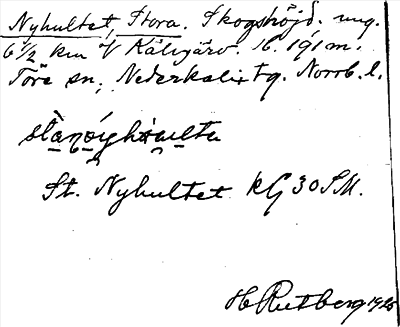 Nyhultet, Stora. Skogshöjd. ung.
6 1/2 km V Kälvjärv. H. 191 m.
Töre sn, Nederkalix tg. Norrb. l.
St. Nyhultet kG 30 SM.
H Rutberg 1925